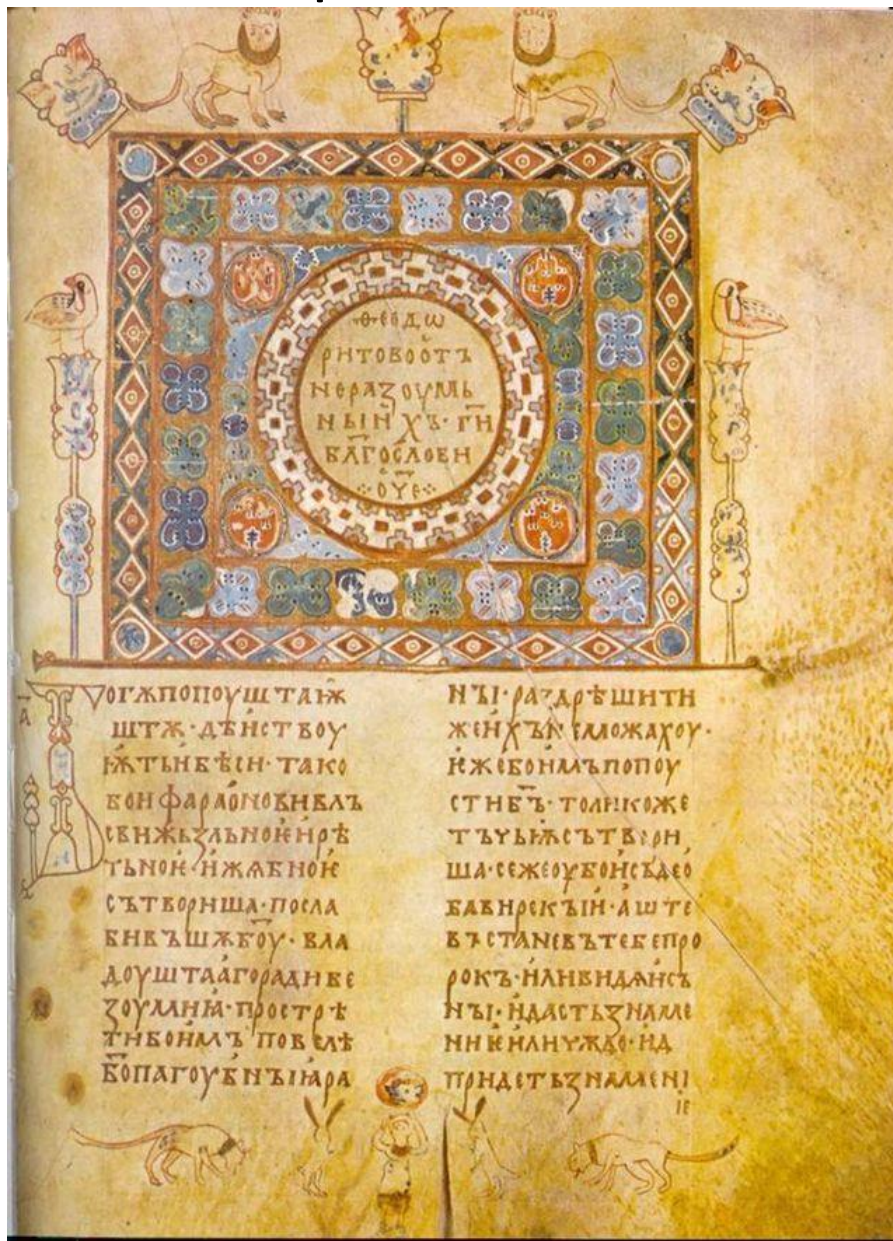 Ѳеодѡ
ритово ѿтъ
неразоумь
ныихъ· г҃и
бл҃гослови
о҃ч҃е
а҃
Бог꙯ж попоушта ѭ
штѫ· дѣиствоу
ѭтъ и бѣси· тако
бо и фараонови влъ
сви жьзлъ
тьноѥ· и жѧбноѥ
сътвориша· посла
бивъшю б҃оу· вла
доушта
зоумиꙗ· прострѣ
ти бо имъ повелѣ
б҃о пагоубныꙗ ра
ны· раздрѣшити
же ихъ не можахоу·
ѥже бо имъ попоу
сти б҃ъ· толико же
тъчьѭ сътвори
ша· се же оубо и съде о
рекыи· аште
въстане въ тебе про
рокъ· или видѧи съ
ны· и дасть знаме
ниѥ или чждо· и
придеть знамени
ѥ